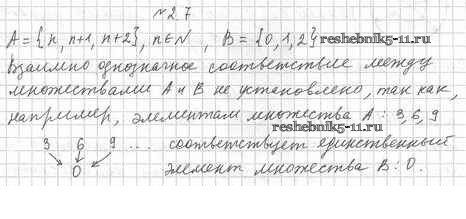 №27
A = {n, n+1, n+2}, n∈N, B = {0, 1, 2}
reshebnik5-11.ru
Взаимно однозначное соответствие между
множествами A и B не установлено, так как,
например, элементам множества A: 3, 6, 9
reshebnik5-11.ru
3 6 9 ... соответствует единственный
0 элемент множества B: 0.